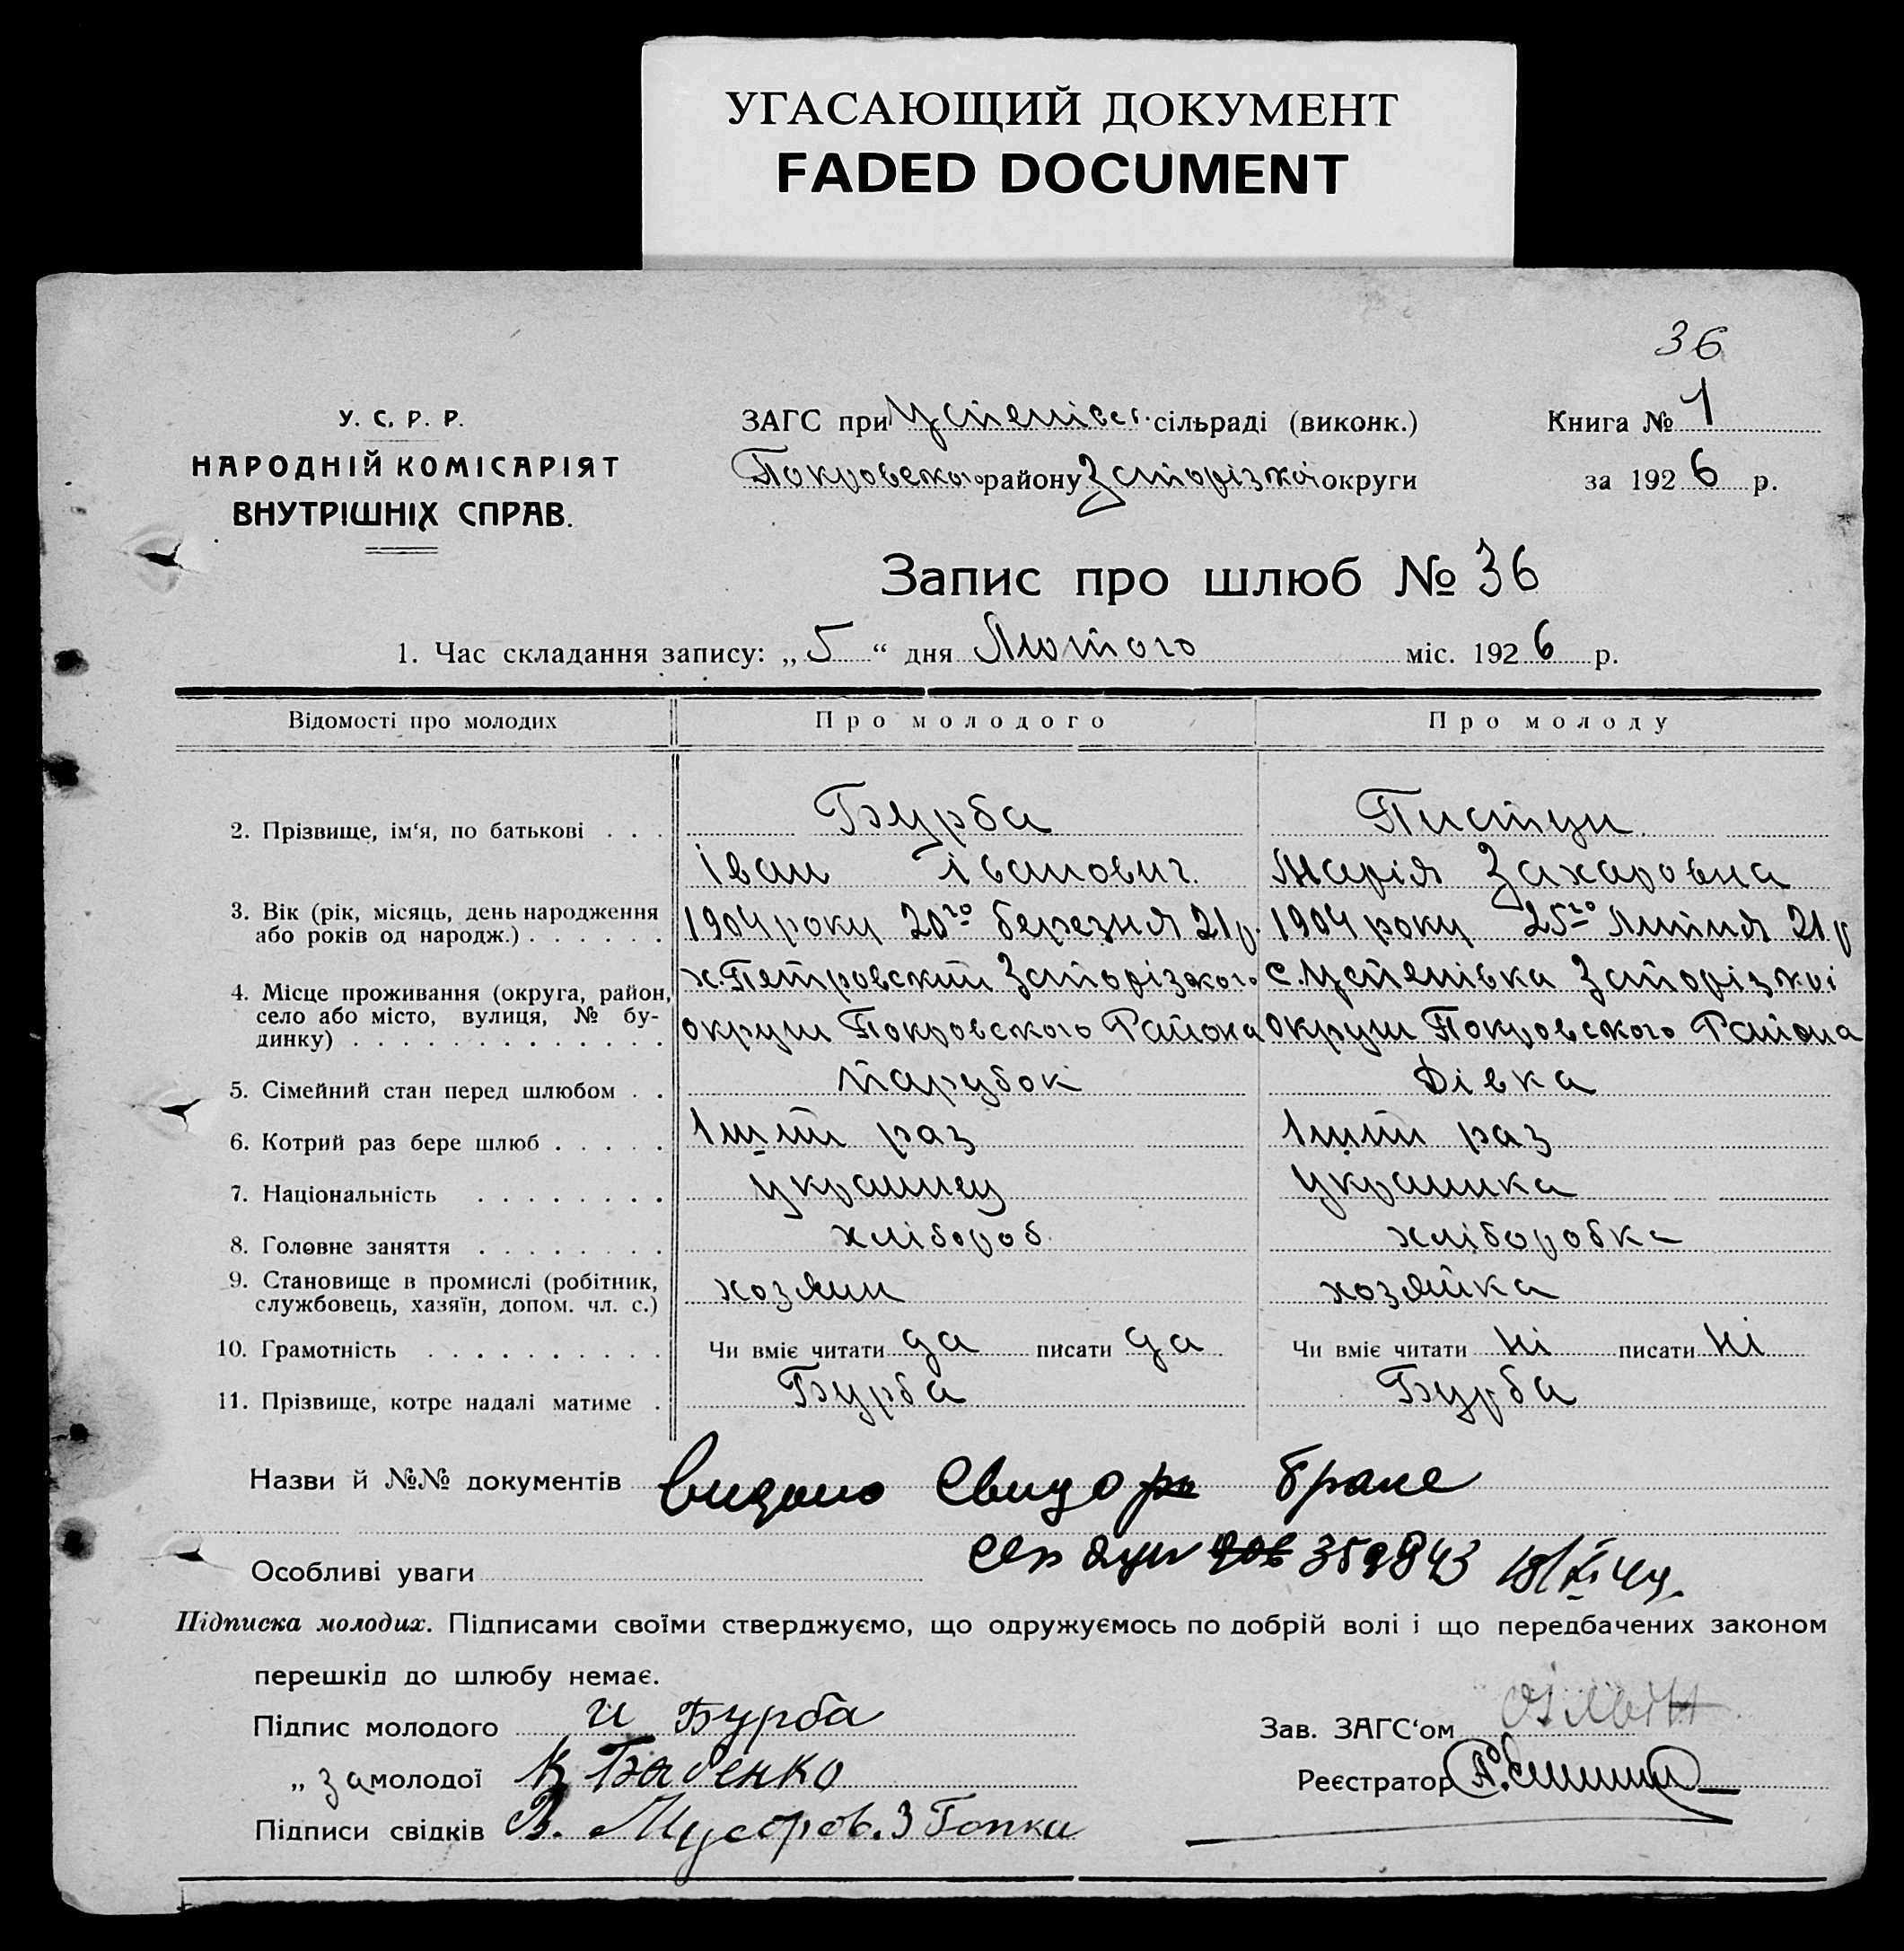 УГАСАЮЩИЙ ДОКУМЕНТ
FADED DOCUMENT
36
У. С. Р. Р.
НАРОДНІЙ КОМІСАРІЯТ
ВНУТРІШНІХ СПРАВ.
ЗАГС при Успенівсь. сільраді (виконк.)
Покровського району Запорізкої округи
Книга № 1
за 1926 р.
Запис про шлюб № 36
1. Час складання запису: „5“ дня Лютого міс. 1926 р.
Відомості про молодих Про молодого Про молоду
2. Прізвище, ім‘я, по батькові . . . Бурба Пистун
Іван Іванович. Марія Захаровна
3. Вік (рік, місяць, день народження або років од народж.) . . . . . . 1904 року 20го березня 21 р. 1904 року 25го Липня 21 р
4. Місце проживання (округа, район, село або місто, вулиця, № будинку) . . . . . . . . . . . . .
х. Петровский Запорізского с. Успенівка Запорізкоі
округи Покровского Района округи Покровского Района
5. Сімейний стан перед шлюбом . . парубок Дівка
6. Котрий раз бере шлюб . . . . . 1ший раз 1ший раз
7. Національність . . . . . . . . украинец украинка
8. Головне заняття . . . . . . . . хлібороб. хліборобка
9. Становище в промислі (робітник, службовець, хазяїн, допом. чл. с.) хозяин хозяйка
10. Грамотність . . . . . . . . . . Чи вміє читати да писати да Чи вміє читати ні писати ні
11. Прізвище, котре надалі матиме . Бурба Бурба
Назви й №№ документів видано Свидо браке
359843
Особливі уваги
Підписка молодих. Підписами своїми стверджуємо, що одружуємось по добрій волі і що передбачених законом
перешкід до шлюбу немає.
Підпис молодого И Бурба
Зав. ЗАГС‘ом
„ за молодої К Бабенко
Реєстратор
Підписи свідків В. Мусоров. З Гопка